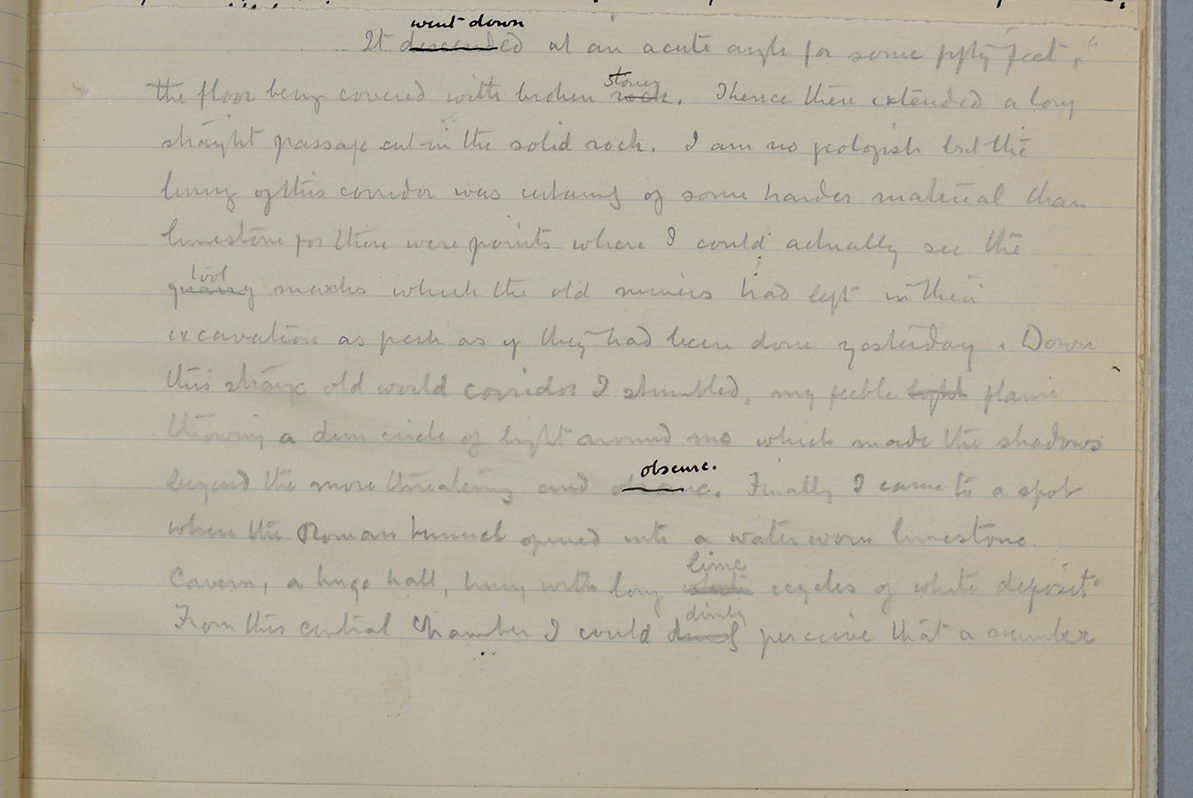 It descended went down at an acute angle for some fifty feet,
the floor being covered with broken rock stones. Thence there extended a long
straight passage cut in the solid rock. I am no geologist but the
lining of this corridor was certainly of some harder material than
limestone for there were points where I could actually see the
quarry tool marks which the old miners had left in their
excavation as fresh as if they had been done yesterday. Down
this strange old world corridor I stumbled, my feeble light flame
throwing a dim circle of light around me which made the shadows
beyond the more threatening and obscure. obscure. Finally I came to a spot
where the Roman tunnel opened into a water worn limestone
Cavern, a huge hall, hung with long white lime icycles of white deposit
From this central Chamber I could dimly dimly perceive that a number